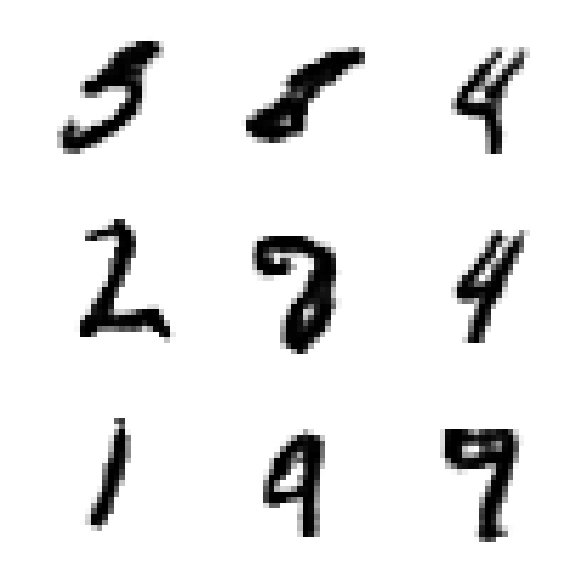 5 8 4
2 8 4
1 9 9